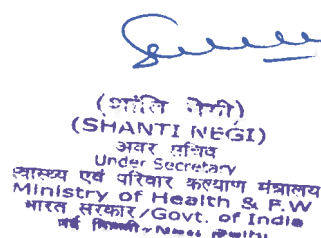 (शांति नेगी)
(SHANTI NEGI)
अवर सचिव
Under Secretary
स्वास्थ्य एवं परिवार कल्याण मंत्रालय
Ministry of Health & F.W
भारत सरकार/Govt. of India
नई दिल्ली-New Delhi